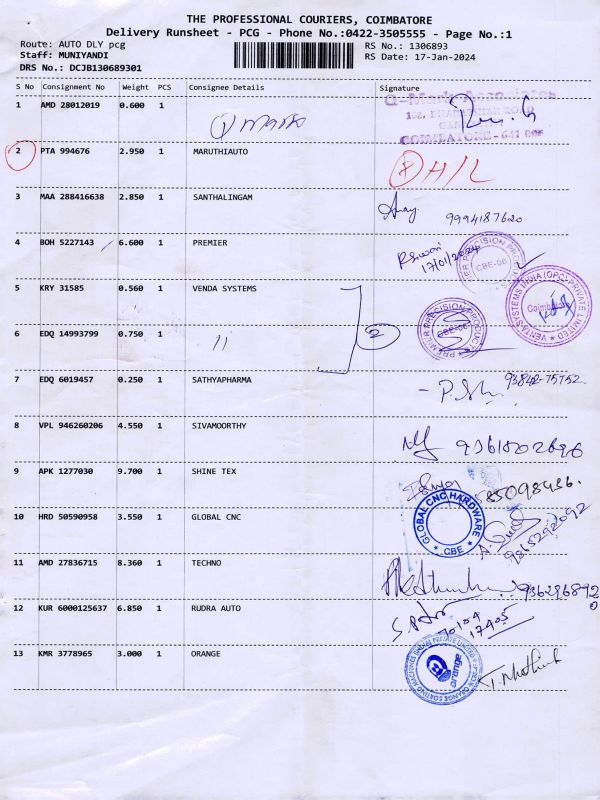 THE PROFESSIONAL COURIERS, COIMBATORE
Delivery Runsheet - PCG - Phone No.:0422-3505555 - Page No.:1
Route: AUTO DLY pcg RS No.: 1306893
Staff: MUNIYANDI RS Date: 17-Jan-2024
DRS No.: DCJB130689301
S No Consignment No Weight PCS Consignee Details Signature
1 AMD 28012019 0.600 1
COIMBATORE - 641 006
2 PTA 994676 2.950 1 MARUTHIAUTO H/L
3 MAA 288416638 2.850 1 SANTHALINGAM 9994187620
4 BOH 5227143 6.600 1 PREMIER
17/01/2024
CBE-06
5 KRY 31585 0.560 1 VENDA SYSTEMS
VENTA SYSTEMS INDIA (OPC) PRIVATE LIMITED
Coimbatore
PREMIER PRECISION PRODUCTS
CBE-06
6 EDQ 14993799 0.750 1 11 2
7 EDQ 6019457 0.250 1 SATHYAPHARMA 93842-75752
8 VPL 946260206 4.550 1 SIVAMOORTHY
9 APK 1277030 9.700 1 SHINE TEX
10 HRD 50590958 3.550 1 GLOBAL CNC
GLOBAL CNC HARDWARE
CBE
11 AMD 27836715 8.360 1 TECHNO
12 KUR 6000125637 6.850 1 RUDRA AUTO
13 KMR 3778965 3.000 1 ORANGE
orange